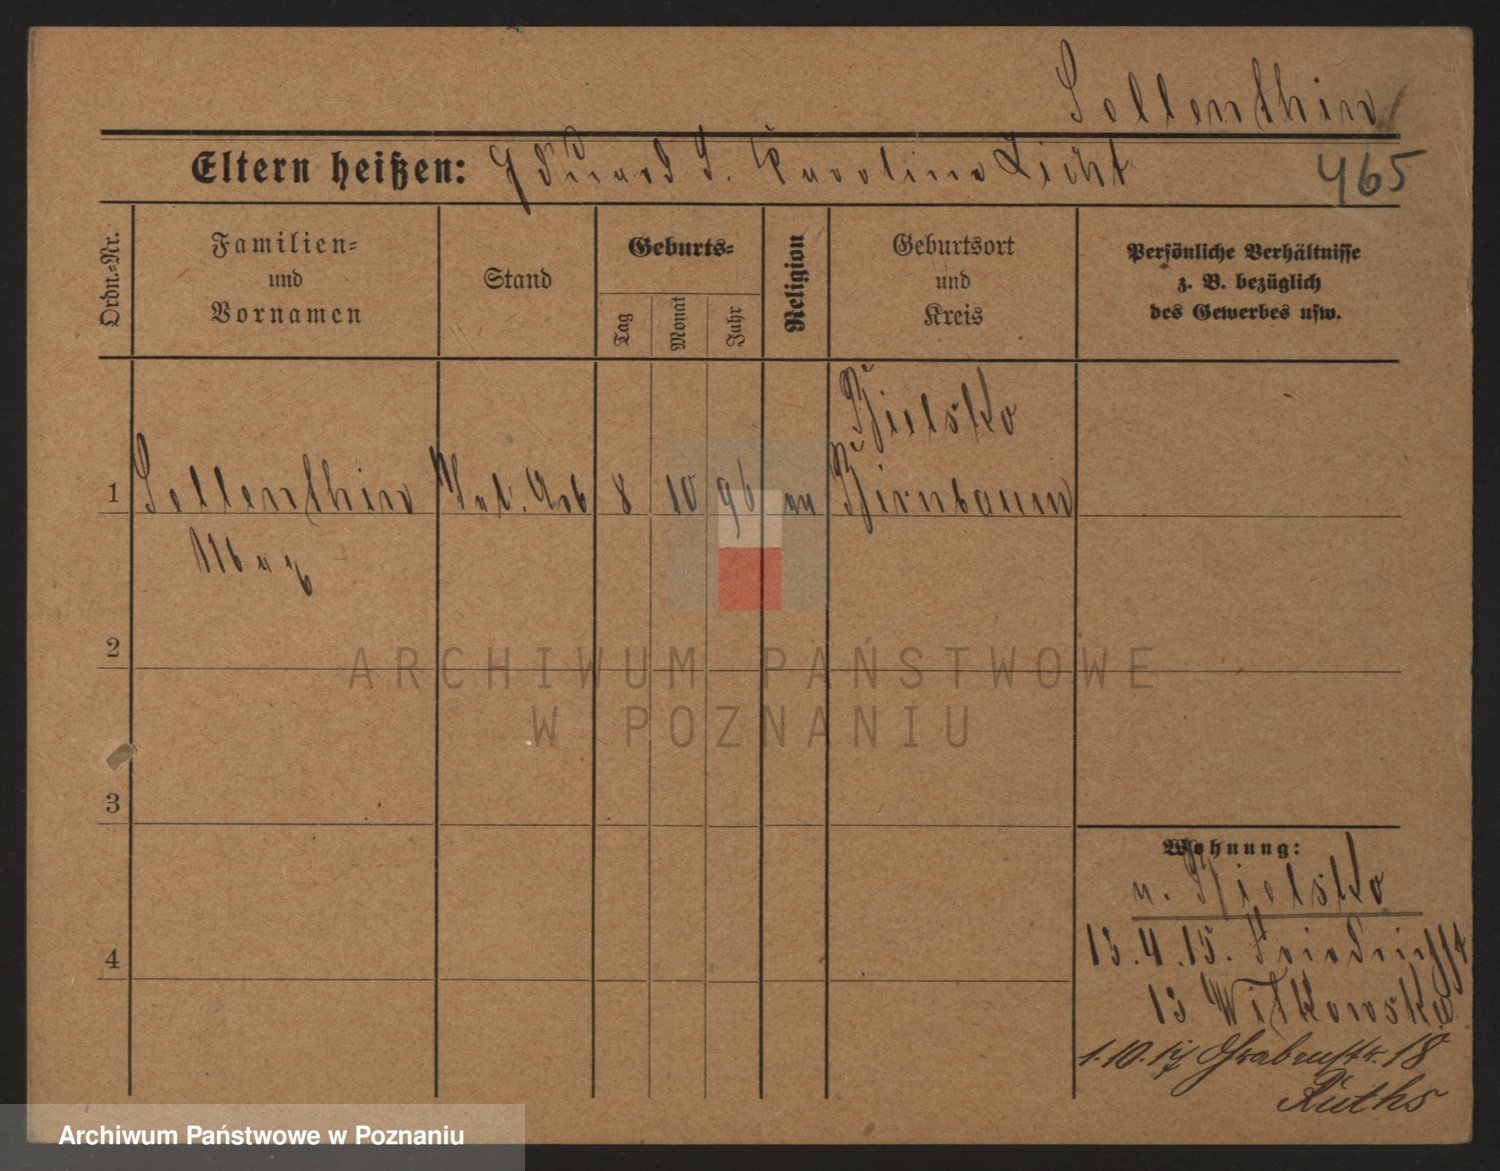 Sellenthin
Eltern heißen: Eduard S. Karolina Licht
465
Ordn.-Nr.
Familien-
und
Vornamen
Stand
Geburts-
Tag
Monat
Jahr
Religion
Geburtsort
und
Kreis
Persönliche Verhältnisse
z. B. bezüglich
des Gewerbes usw.
1
Sellenthin
Max
Arb
8
10
96
Bielsko
Birnbaum
2
3
4
Wohnung:
n. Bielsko
13.4.15. Friedrichstr
13 Witkowski
1.10.17 Grabenstr. 18
Kuths
ARCHIWUM PAŃSTWOWE
W POZNANIU
Archiwum Państwowe w Poznaniu